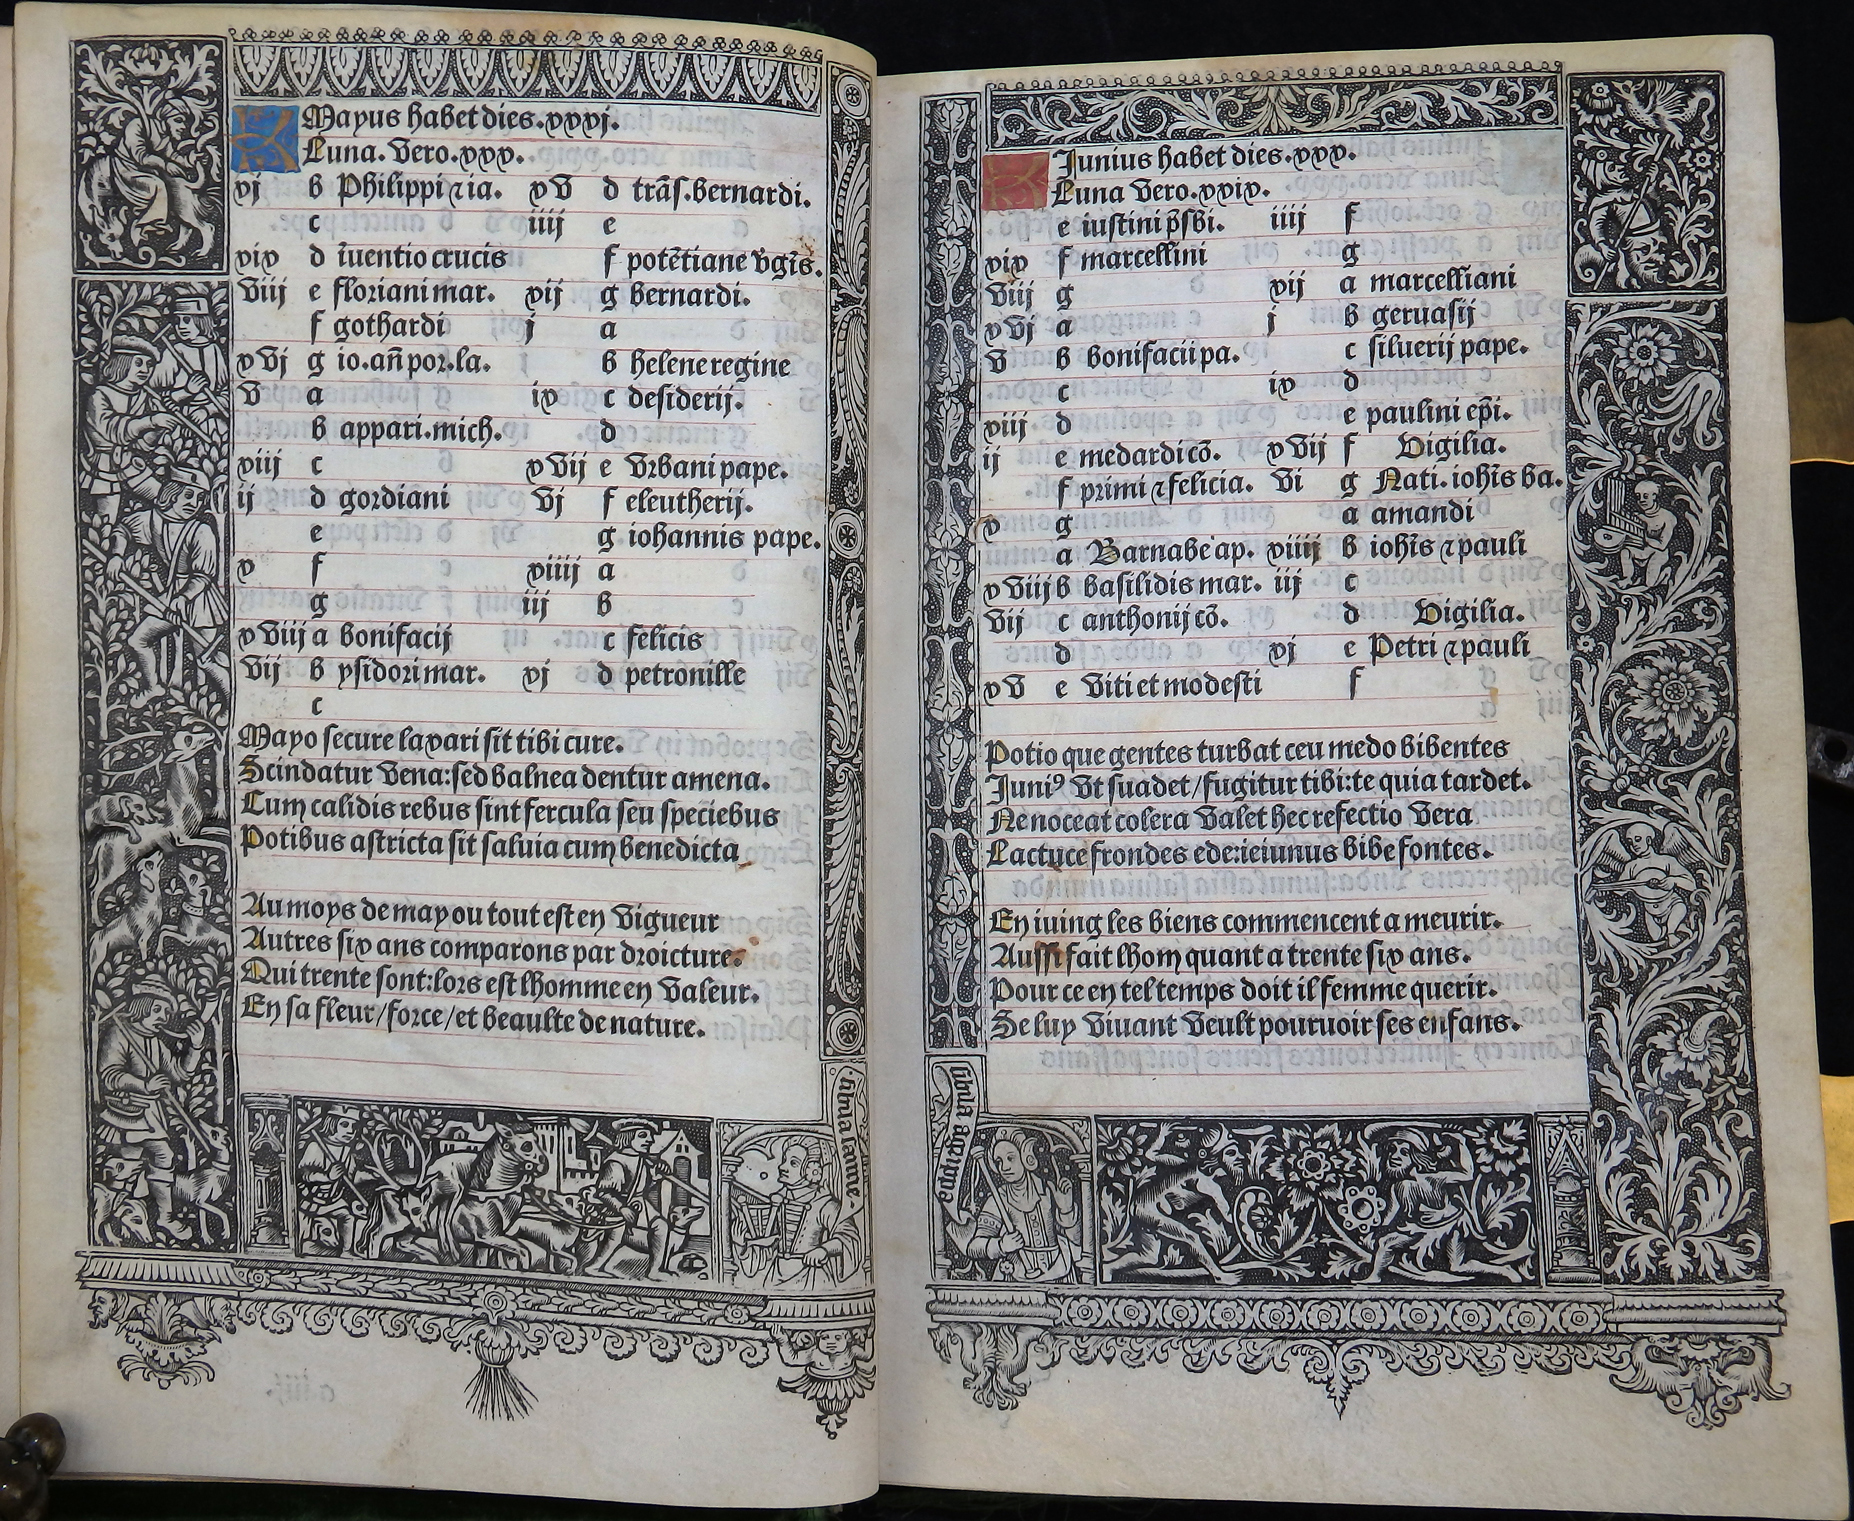 Mayus habet dies.xxxj.
Luna. Vero.xxx.
xj b Philippi ⁊ ia. xv d trãs.bernardi.
c iiij e
xix d ĩuentio crucis f potẽtiane vgĩs.
viij e floriani mar. xij g bernardi.
f gothardi j a
xvj g io.añ por.la. b helene regine
v a ix c desiderij.
b appari.mich. d
xiij c xvij e vrbani pape.
ij d gordiani vj f eleutherij.
e g iohannis pape.
x f xiiij a
g iij b
xviij a bonifacij c felicis
vij b ysidori mar. xj d petronille
c
Mayo secure laxari sit tibi cure.
Scindatur vena:sed balnea dentur amena.
Cum calidis rebus sint fercula seu speciebus
Potibus astricta sit saluia cum benedicta
Au moys de may ou tout est en vigueur
Autres six ans comparons par droicture.
Qui trente sont:lors est lhomme en valeur.
En sa fleur/force/et beaulte de nature.
Junius habet dies.xxx.
Luna vero.xxix.
e iustini p̃sbi. iiij f
xix f marcellini g
viij g xij a marcelliani
xvj a j b geruasij
v b bonifacii pa. c siluerij pape.
c ix d
xiij d e paulini ep̃i.
ij e medardi cõ. xvij f Vigilia.
f primi ⁊ felicia. vi g Nati.iohĩs ba.
x g a amandi
a Barnabe ap. xiiij b iohĩs ⁊ pauli
xviij b basilidis mar. iij c
vij c anthonij cõ. d Vigilia.
d xj e Petri ⁊ pauli
xv e viti et modesti f
Potio que gentes turbat ceu medo bibentes
Juniꝰ vt suadet/fugitur tibi:te quia tardet.
Ne noceat colera valet hec refectio vera
Lactuce frondes ede:ieiunus bibe fontes.
En iuing les biens commencent a meurir.
Aussi fait lhom quant a trente six ans.
Pour ce en tel temps doit il femme querir.
Se luy viuant veult pouruoir ses enfans.
sibila agrippa